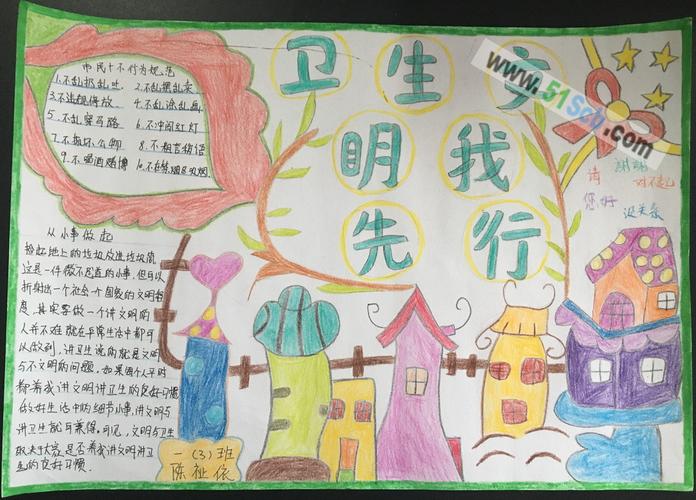 市民十不行为规范
1.不乱扔乱吐 2.不乱摆乱卖
3.不违规停放 4.不乱涂乱画
5.不乱穿马路 6.不冲闯红灯
7.不损坏公物 8.不粗言秽语
9.不喝酒赌博 10.不在禁烟区吸烟
卫生
明我
先行
www.51Scb.com
请
您好
谢谢
对不起
没关系
从小事做起
捡起地上的垃圾放进垃圾筒
这是一件微不足道的小事,但可以
折射出一个社会一个国家的文明程
度,其实要做一个讲文明的
人并不难,就在平常生活中都可
以做到,讲卫生说的就是文明
与不文明的问题,如果每个人平时
都有我讲文明讲卫生的良好习惯
做好生活中的细节小事,讲文明与
讲卫生就可兼得,可见,文明与卫生
取决于大家是否有我讲文明讲卫
生的良好习惯.
一(3)班
陈祉依